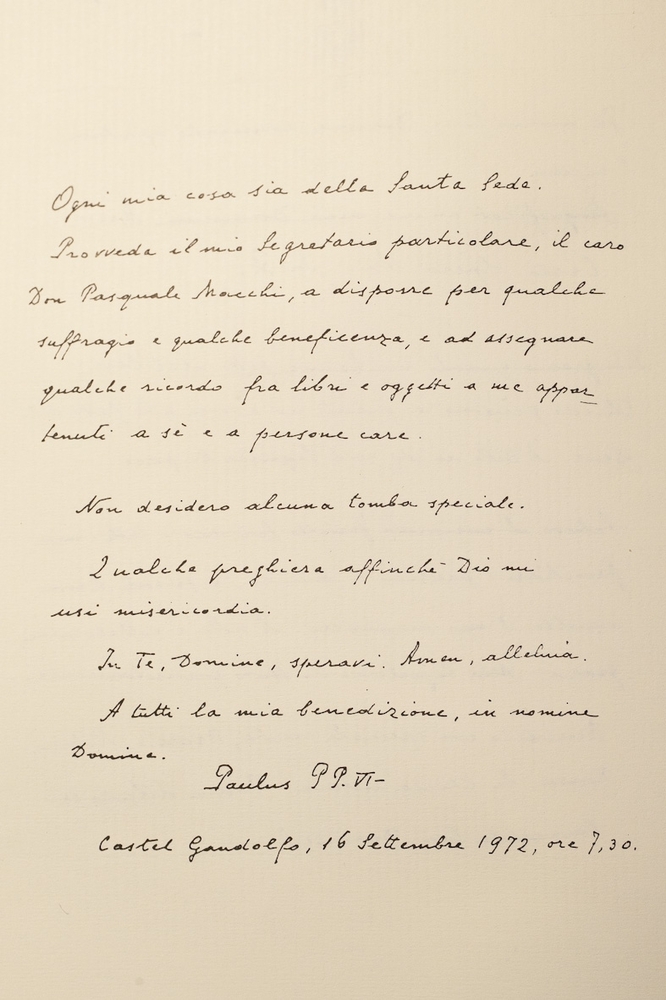 Ogni mia cosa sia della Santa Sede.
Provveda il mio Segretario particolare, il caro
Don Pasquale Macchi, a disporre per qualche
suffragio e qualche beneficenza, e ad assegnare
qualche ricordo fra libri e oggetti a me appar
tenuti a sè e a persone care.
Non desidero alcuna tomba speciale.
Qualche preghiera affinché Dio mi
usi misericordia.
In Te, Domine, speravi. Amen, alleluia.
A tutti la mia benedizione, in nomine
Domini.
Paulus PP. VI
Castel Gandolfo, 16 Settembre 1972, ore 7,30.